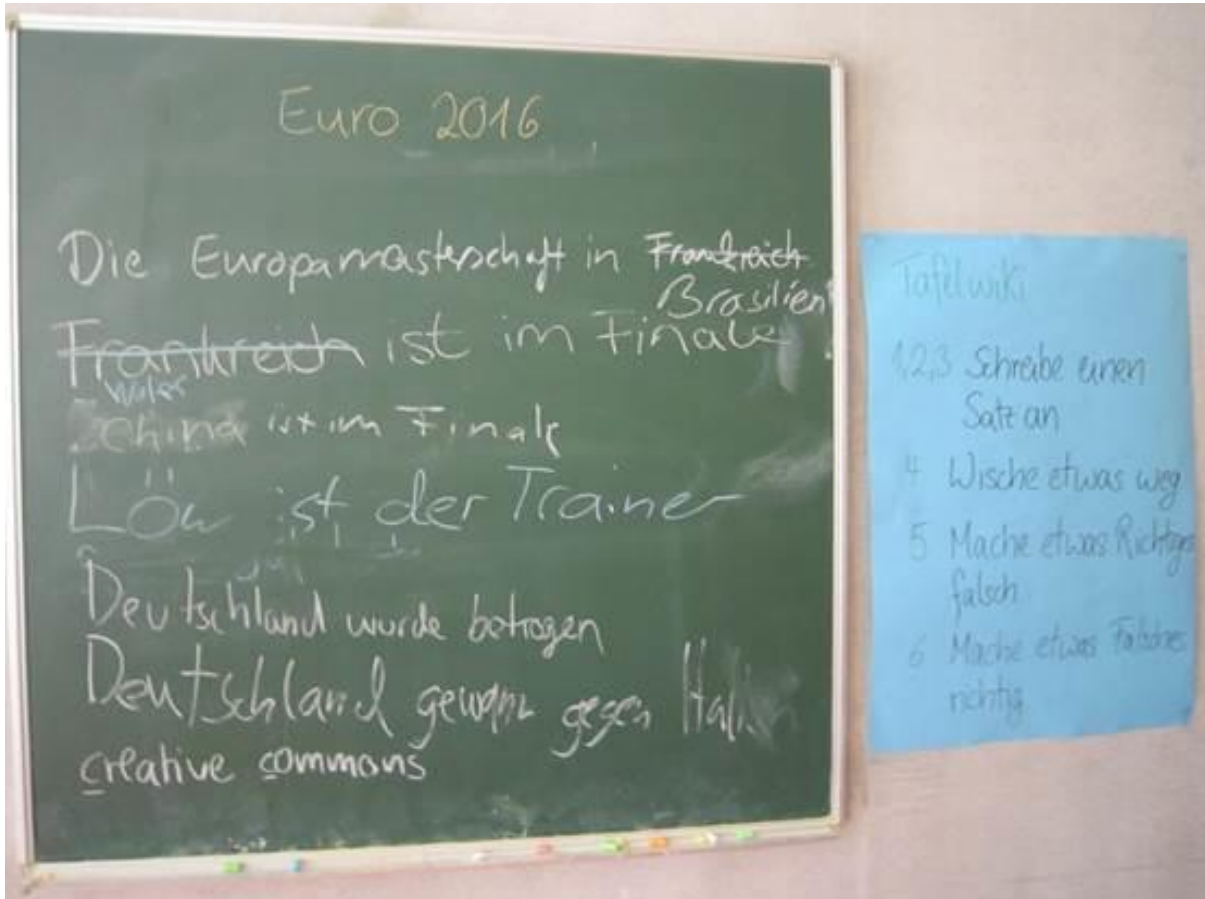 Euro 2016
Die Europameisterschaft in Frankreich
Brasilien
Frankreich ist im Finale
Wales
China ist im Finale
Löw ist der Trainer
Deutschland wurde betrogen
Deutschland gewann gegen Italien
creative commons
Tafelwiki
1,2,3 Schreibe einen
Satz an
4 Wische etwas weg
5 Mache etwas Richtiges
falsch
6 Mache etwas Falsches
richtig